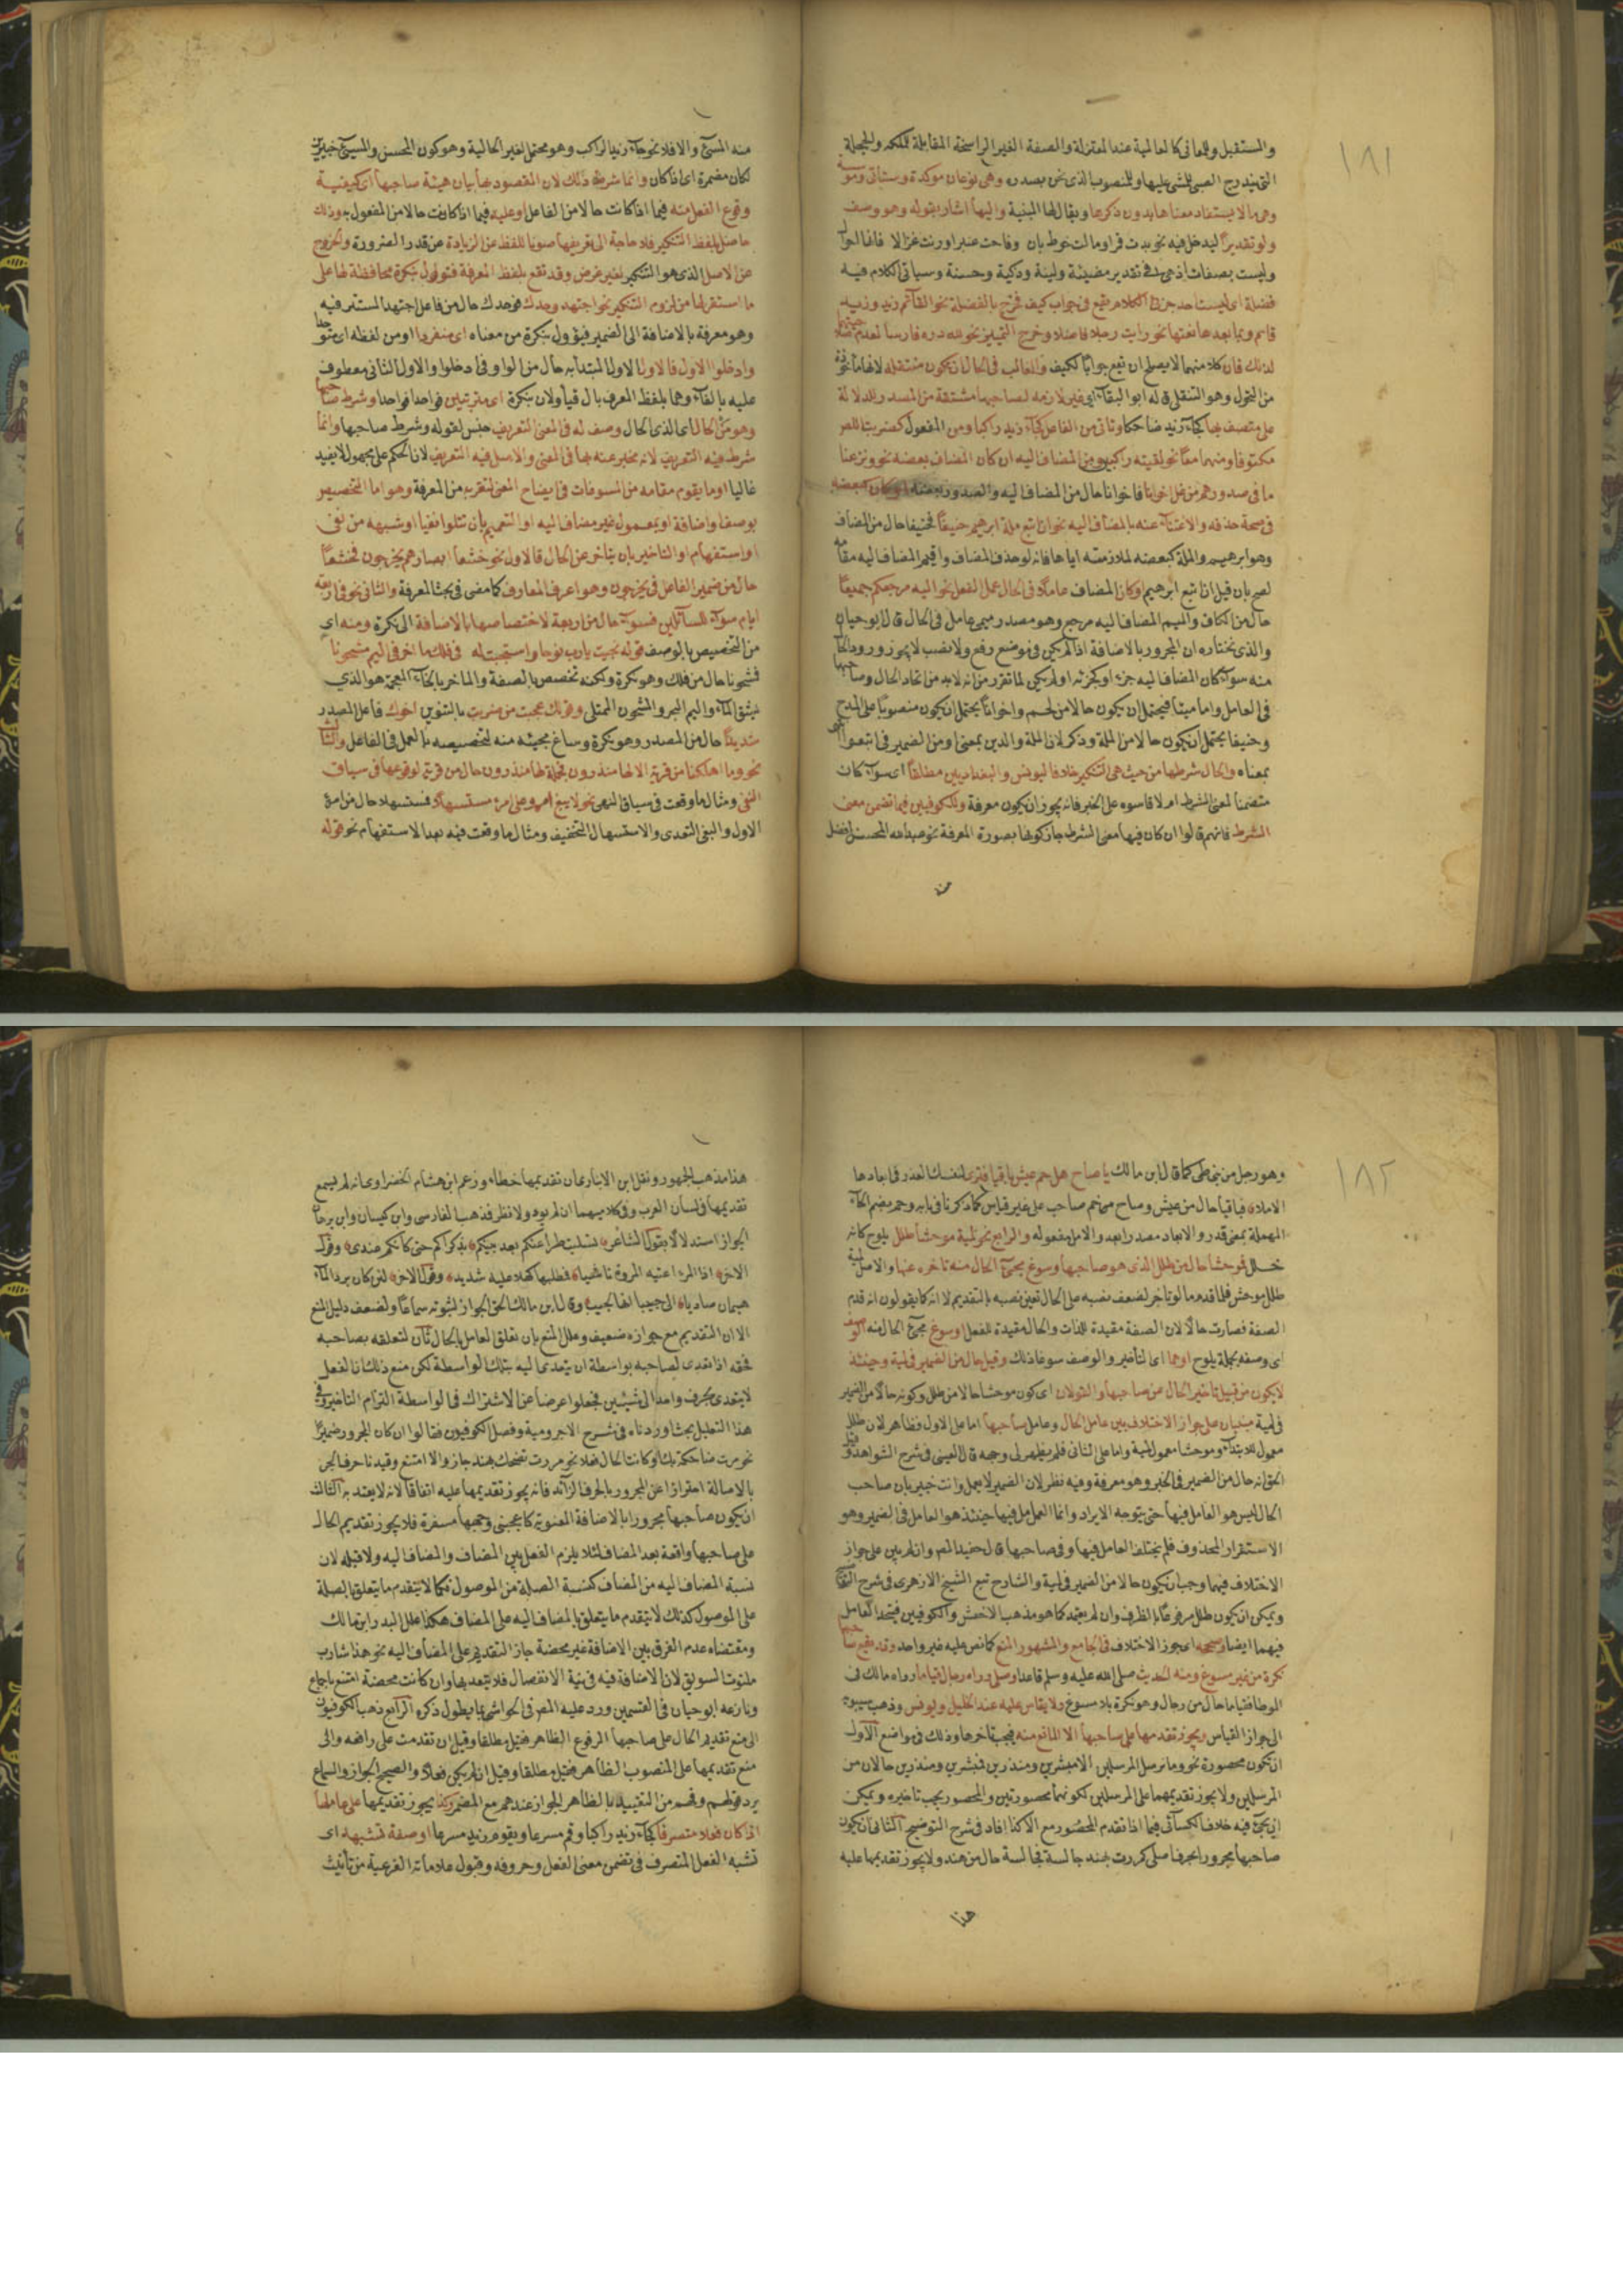 ١٨١
والمستقبل وللمعانى كالعالمية عند المعتزلة والصفة الغير الراسخة المقابلة للملكة وللعجلة
التى يدرج الصبى للمشى عليها وللمنصوب الذى نحن بصدده وهى نوعان موكدة وستاتى وموسسة
وهى ما لا يستفاد معناها بدون ذكرها ويقال لها المبنية واليها اشار بقوله وهو وصف
ولو تقديرا ليدخل فيه نحو بدت قمرا ومالت خوط بان وفاحت عنبرا ورنت غزالا فانها احوال
وليست بصفات اذ هى فى تقدير مضيئة ولينة وذكية وحسنة وسياتى الكلام فيه
فضلة اى ليست احد جزئى الكلام يقع فى جواب كيف فخرج بالفضلة نحو القائم زيد وزيد
قائم وبما بعدها نعتها نحو رايت رجلا فاضلا وخرج التمييز نحو لله دره فارسا لعدم
لذلك فان كلا منهما لا يصلح ان يقع جوابا لكيف والغالب فى الحال ان تكون منتقلة لانها ماخوذة
من التحول وهو التنقل قاله ابو البقاء اى غير لازمة لصاحبها مشتقة من المصدر للدلالة
على متصف بها كجاء زيد ضاحكا وتاتى من الفاعل كجاء زيد راكبا ومن المفعول كضربت اللص
مكتوفا ومنهما معا نحو لقيته راكبين ومن المضاف اليه ان كان المضاف بعضه نحو ونزعنا
ما فى صدورهم من غل اخوانا فاخوانا حال من المضاف اليه والصدور بعضه او كان كبعضه
فى صحة حذفه والاغتناء عنه بالمضاف اليه نحو ان اتبع ملة ابرهيم حنيفا فحنيفا حال من المضاف
وهو ابرهيم والملة كبعضه لملازمته اياها فانه لو حذف المضاف واقيم المضاف اليه مقامه
لصح بان قيل ان اتبع ابرهيم او كان المضاف عاملا فى الحال عمل الفعل نحو اليه مرجعكم جميعا
حال من الكاف والميم المضاف اليه مرجع وهو مصدر ميمى عامل فى الحال قال ابو حيان
والذى نختاره ان المجرور بالاضافة اذا لم يكن فى موضع رفع ولا نصب لا يجوز ورود الحال
منه سواء كان المضاف اليه جزء او كجزئه او لم يكن لما تقرر من انه لا بد من اتحاد الحال وصاحبها
فى العامل واما ميتا فيحتمل ان يكون حالا من لحم واخوانا يحتمل ان يكون منصوبا على المدح
وحنيفا يحتمل ان يكون حالا من الملة وذكر لان الملة والدين بمعنى او من الضمير فى اتبعوا
بمعناه والحال شرطها من حيث هى التنكير خلافا ليونس والبغداديين مطلقا اى سواء كان
متضمنا لمعنى الشرط ام لا قاسوه على الخبر فانه يجوز ان يكون معرفة وللكوفيين فيما تضمن معنى
الشرط فانهم قالوا ان كان فيها معنى الشرط جاز كونها بصورة المعرفة نحو عبد الله المحسن افضل
منه
منه المسئ والا فلا نحو جاء زيد الراكب وهو محتمل لغير الحالية وهو كون المحسن والمسئ خبرين
لكان مضمرة اى اذا كان وانما شرط ذلك لان المقصود بها بيان هيئة صاحبها اى كيفية
وقوع الفعل منه فيما اذا كانت حالا من الفاعل او عليه فيما اذا كانت حالا من المفعول به وذلك
حاصل بلفظ التنكير فلا حاجة الى تعريفها صونا للفظ عن الزيادة عن قدر الضرورة والخروج
عن الاصل الذى هو التنكير لغير غرض وقد تقع بلفظ المعرفة فتؤول بنكرة محافظة لها على
ما استقر لها من لزوم التنكير نحو اجتهد وحدك فوحدك حال من فاعل اجتهد المستتر فيه
وهو معرفة بالاضافة الى الضمير فيؤول بنكرة من معناه اى منفردا او من لفظه اى متوحدا
وادخلوا الاول فالاول الاول المبتدأ به حال من الواو فى ادخلوا والاول الثانى معطوف
عليه بالفاء وهما بلفظ المعرف بال فيأولان بنكرة اى مترتبين فواحدا فواحدا وشرط صاحبها
وهو من الحال اى الذى الحال وصف له فى المعنى التعريف جنس لقوله وشرط صاحبها وانما
شرط فيه التعريف لانه مخبر عنه بها فى المعنى والاصل فيه التعريف لان الحكم على مجهول لا يفيد
غالبا او ما يقوم مقامه من المسوغات فى ايضاح المعنى لتقربه من المعرفة وهو اما التخصيص
بوصف او اضافة او بمعمول غير مضاف اليه او التعميم بان تتلو نفيا او شبهه من نهى
او استفهام او التاخير بان يتاخر عن الحال فالاول نحو خشعا ابصارهم يخرجون فخشعا
حال من ضمير الفاعل فى يخرجون وهو اعرف المعارف كما مضى فى بحث المعرفة والثانى نحو فى اربعة
ايام سواء للسائلين فسواء حال من اربعة لاختصاصها بالاضافة الى نكرة ومنه اى
من التخصيص بالوصف قوله نجيت يا رب نوحا واستجبت له فى فلك ماخر فى اليم مشحونا
فمشحونا حال من فلك وهو نكرة ولكنه تخصص بالصفة والماخر بالخاء المعجمة هو الذى
يشق الماء واليم البحر والمشحون الممتلى وقولك عجبت من ضرب بالتنوين اخوك فاعل المصدر
شديدا حال من المصدر وهو نكرة وساغ مجيئه منه لتخصيصه بالعمل فى الفاعل والثالث
نحو وما اهلكنا من قرية الا لها منذرون فجملة لها منذرون حال من قرية لوقوعها فى سياق
النفى ومثال ما وقعت فى سياق النهى نحو لا يبغ امرؤ على امرئ مستسهلا فمستسهلا حال من امرئ
الاول والبغى التعدى والاستسهال التخفيف ومثال ما وقعت فيه بعد الاستفهام نحو قوله
١٨٢
وهو رجل من طى كما قال ابن مالك يا صاح هل حم عيش باقيا فترى لنفسك العذر فى ابعادها
الاملا فباقيا حال من عيش وصاح مرخم صاحب على غير قياس كما ذكرنا فى بابه وحم بضم الحاء
المهملة بمعنى قدر والابعاد مصدر ابعد والامل مفعوله والرابع نحو لمية موحشا طلل يلوح كانه
خلل فموحشا حال من طلل الذى هو صاحبها وسوغ مجئ الحال منه تاخره عنها والاصل لمية
طلل موحش فلما قدم ما لو تاخر لضعف نصبه على الحال تعين نصبه بالتقديم لا انه كما يقولون انه قدم
الصفة فصارت حالا لان الصفة مقيدة للذات والحال مقيدة للفعل او سوغ مجئ الحال منه الوصف
اى وصفه بجملة يلوح او هما اى التأخير والوصف سوغا ذلك وقيل حال من الضمير فى لمية وحينئذ
لا يكون من قبيل تأخير الحال عن صاحبها والقولان اى كون موحشا حالا من طلل وكونه حالا من الضمير
فى لمية مبنيان على جواز الاختلاف بين عامل الحال وعامل صاحبها اما على الاول فظاهر لان طلل
معمول للابتداء وموحشا معمول لمية واما على الثانى فلم يظهر لى وجهه قال العينى فى شرح الشواهد وقيل
الحق انه حال من الضمير فى الخبر وهو معرفة وفيه نظر لان الضمير لا يعمل وانت خبير بان صاحب
الحال ليس هو العامل فيها حتى يتوجه الايراد وانما العامل فيها حينئذ هو العامل فى الضمير وهو
الاستقرار المحذوف فلم يختلف العامل فيها وفى صاحبها قال حفيد المص وان لم يبن على جواز
الاختلاف فيهما وجب ان يكون حالا من الضمير فى لمية والشارح تبع الشيخ الازهرى فى شرح
ويمكن ان يكون طلل مرفوعا بالظرف وان لم يعتمد كما هو مذهب الاخفش والكوفيين فيتحد العامل
فيهما ايضا وصححه اى جوز الاختلاف فى الجامع والمشهور المنع كما نص عليه غير واحد وقد يقع صاحبها
نكرة من غير مسوغ ومنه الحديث صلى الله عليه وسلم قاعدا وصلى وراءه رجال قياما رواه مالك فى
الموطا فقياما حال من رجال وهو نكرة بلا مسوغ ولا يقاس عليه عند الخليل ويونس وذهب سيبويه
الى جواز القياس ويجوز تقدمها على صاحبها الا لمانع منه فيجب تاخرها وذلك فى مواضع الاول
ان تكون محصورة نحو وما نرسل المرسلين الا مبشرين ومنذرين فمبشرين ومنذرين حالان من
المرسلين ولا يجوز تقديمهما على المرسلين لكونهما محصورتين والمحصور يجب تاخيره ويمكن
ان يجرى فيه خلاف الكسائى فيما اذا تقدم المحصور مع الا كذا افاد فى شرح التوضيح الثانى ان يكون
صاحبها مجرورا بحرف اصلى كمررت بهند جالسة فجالسة حال من هند ولا يجوز تقديمها عليه
هذا
هذا مذهب الجمهور ونقل ابن الانبارى ان تقديمها خطاء وزعم ابن هشام الخضراوى انه لم يسمع
تقديمها فى لسان العرب وفى كلاميهما ان لم يؤد ولا نظر فذهب الفارسى وابن كيسان وابن برهان
الجواز استدلالا بقول الشاعر تسليت طرا عنكم بعد بينكم بذكراكم حتى كانكم عندى وقول
الاخر اذا المرء اعيته المروة ناشئيا فمطلبها كهلا عليه شديد وقول الاخر لئن كان برد الماء
هيمان صاديا الى حبيبا انها لحبيب وقال ابن مالك الحق الجواز لثبوته سماعا ولضعف دليل المنع
الا ان التقديم مع جوازه ضعيف وعلل المنع بان تعلق العامل بالحال ثان لتعلقه بصاحبه
فحقه اذا تعدى لصاحبه بواسطة ان يتعدى اليه بتلك الواسطة لكن منع ذلك ان الفعل
لا يتعدى بحرف واحد الى شيئين فجعلوا عوضا عن الاشتراك فى الواسطة التزام التاخير وفى
هذا التعليل بحث اوردناه فى شرح الاجرومية وفصل الكوفيون فقالوا ان كان المجرور ضميرا
نحو مررت ضاحكة بك او كانت الحال فعلا نحو مررت تضحك بهند جاز والا امتنع وقيدنا حرف الجر
بالاصالة احترازا عن المجرور بالحرف الزائد فانه يجوز تقديمها عليه اتفاقا لانه لا يعتد به الثالث
ان يكون صاحبها مجرورا بالاضافة المعنوية كاعجبنى وجهها مسفرة فلا يجوز تقديم الحال
على صاحبها واقعة بعد المضاف لئلا يلزم الفصل بين المضاف والمضاف اليه ولا قبله لان
نسبة المضاف اليه من المضاف كنسبة الصلة من الموصول فكما لا يتقدم ما يتعلق بالصلة
على الموصول كذلك لا يتقدم ما يتعلق بالمضاف اليه على المضاف هكذا علل البدر ابن مالك
ومقتضاه عدم الفرق بين الاضافة غير محضة جاز التقديم على المضاف اليه نحو هذا شارب
ملتوتا السويق لان الاضافة فيه فى نية الانفصال فلا يتعد بها وان كانت محضة امتنع باجماع
ونازعه ابو حيان فى القسمين ورد عليه المص فى الحواشى بما يطول ذكره الرابع ذهب الكوفيون
الى منع تقديم الحال على صاحبها المرفوع الظاهر فقيل مطلقا وقيل ان تقدمت على رافعه والى
منع تقديمها على المنصوب الظاهر فقيل مطلقا وقيل ان لم يكن فعلا والصحيح الجواز والسماع
يرد قولهم وفهم من التقييد بالظاهر الجواز عندهم مع المضمر وكذا يجوز تقديمها على عاملها
اذا كان فعلا متصرفا كجاء زيد راكبا وقم مسرعا ويقوم زيد مسرعا او صفة تشبهه اى
تشبه الفعل المتصرف فى تضمن معنى الفعل وحروفه وقبول علاماته الفرعية من تأنيث